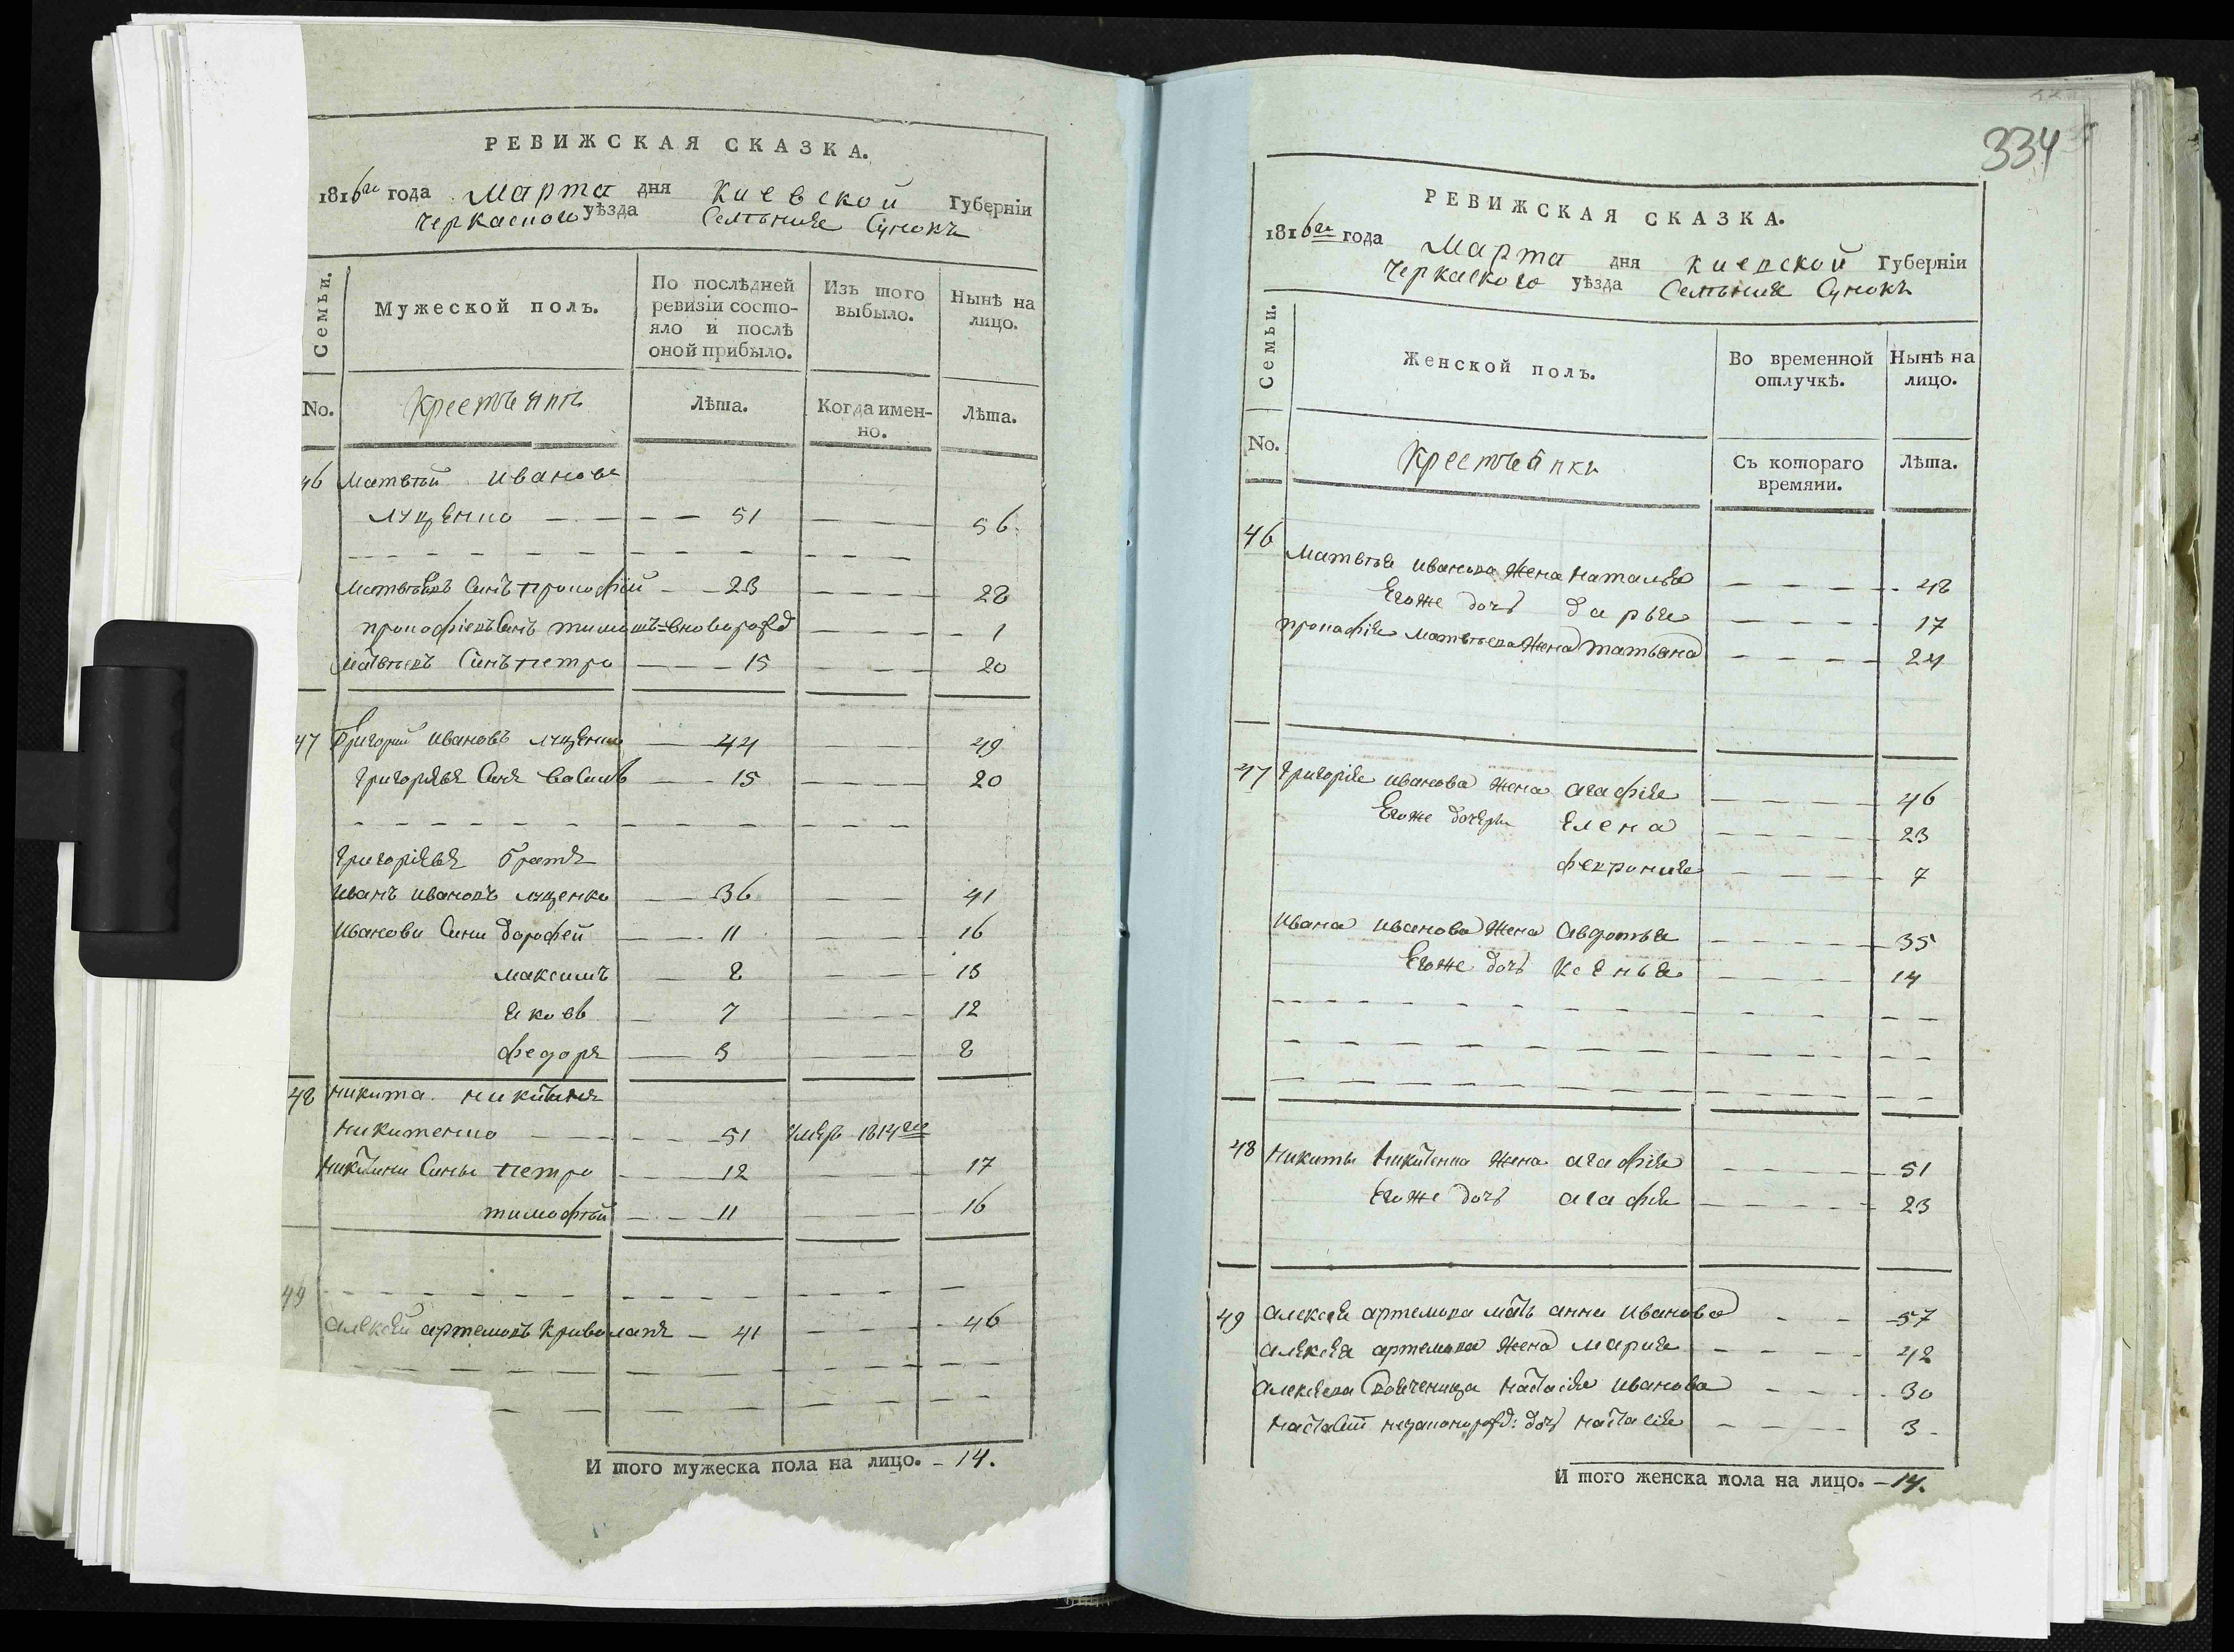 РЕВИЖСКАЯ СКАЗКА.
1816го года Марта дня Киевской Губерніи
Черкаского уѣзда Селѣния Сунокъ
Семьи.
Мужеской полъ.
По послѣдней ревизіи состояло и послѣ оной прибыло.
Изъ того выбыло.
Нынѣ на лицо.
No.
Крестьяня
Лѣта.
Когда именно.
Лѣта.
46 Матвѣй Ивановъ
Луценко 51 56
Матвѣевъ Синъ Прокофій 23 28
Прокофіевъ Синъ Тимошъ новорожд 1
Матвѣевъ Синъ Петро 15 20
47 Григорий Ивановъ Луценко 44 49
Григорѣевъ Синъ Василь 15 20
Григоріевъ братъ
Иванъ Ивановъ Луценко 36 41
Иванови Сини Дорофей 11 16
Максимъ 8 13
Яковъ 7 12
Федоръ 3 8
48 Никита Никитинъ
Никитенко 51 Умеръ 1814го
Никитини Сины Петро 12 17
Тимофѣй 11 16
49
Алексѣй Артемовъ Криволапъ 41 46
И того мужеска пола на лицо. 14.
334
РЕВИЖСКАЯ СКАЗКА.
1816го года Марта дня Киевской Губерніи
Черкаского уѣзда Селѣния Сунокъ
Семьи.
Женской полъ.
Во временной отлучкѣ.
Нынѣ на лицо.
No.
Крестьянки
Съ котораго времяни.
Лѣта.
46 Матвѣя Иванова жена Наталья 48
Егоже дочь Дарья 17
Прокофія Матвѣева жена Татьяна 24
47 Григорія Иванова жена Агафія 46
Егоже дочери Елена 23
Феврония 7
Ивана Иванова жена Авдотья 35
Егоже дочь Ксенья 14
48 Никиты Никитенка жена Агафія 51
Егоже дочь Агафія 23
49 Алексѣя Артемова мать Анна Иванова 57
Алексѣя Артемова жена Мария 42
Алексѣева Настасія Иванова 30
незаконорожд: дочь Настасія 3
И того женска пола на лицо. 14.